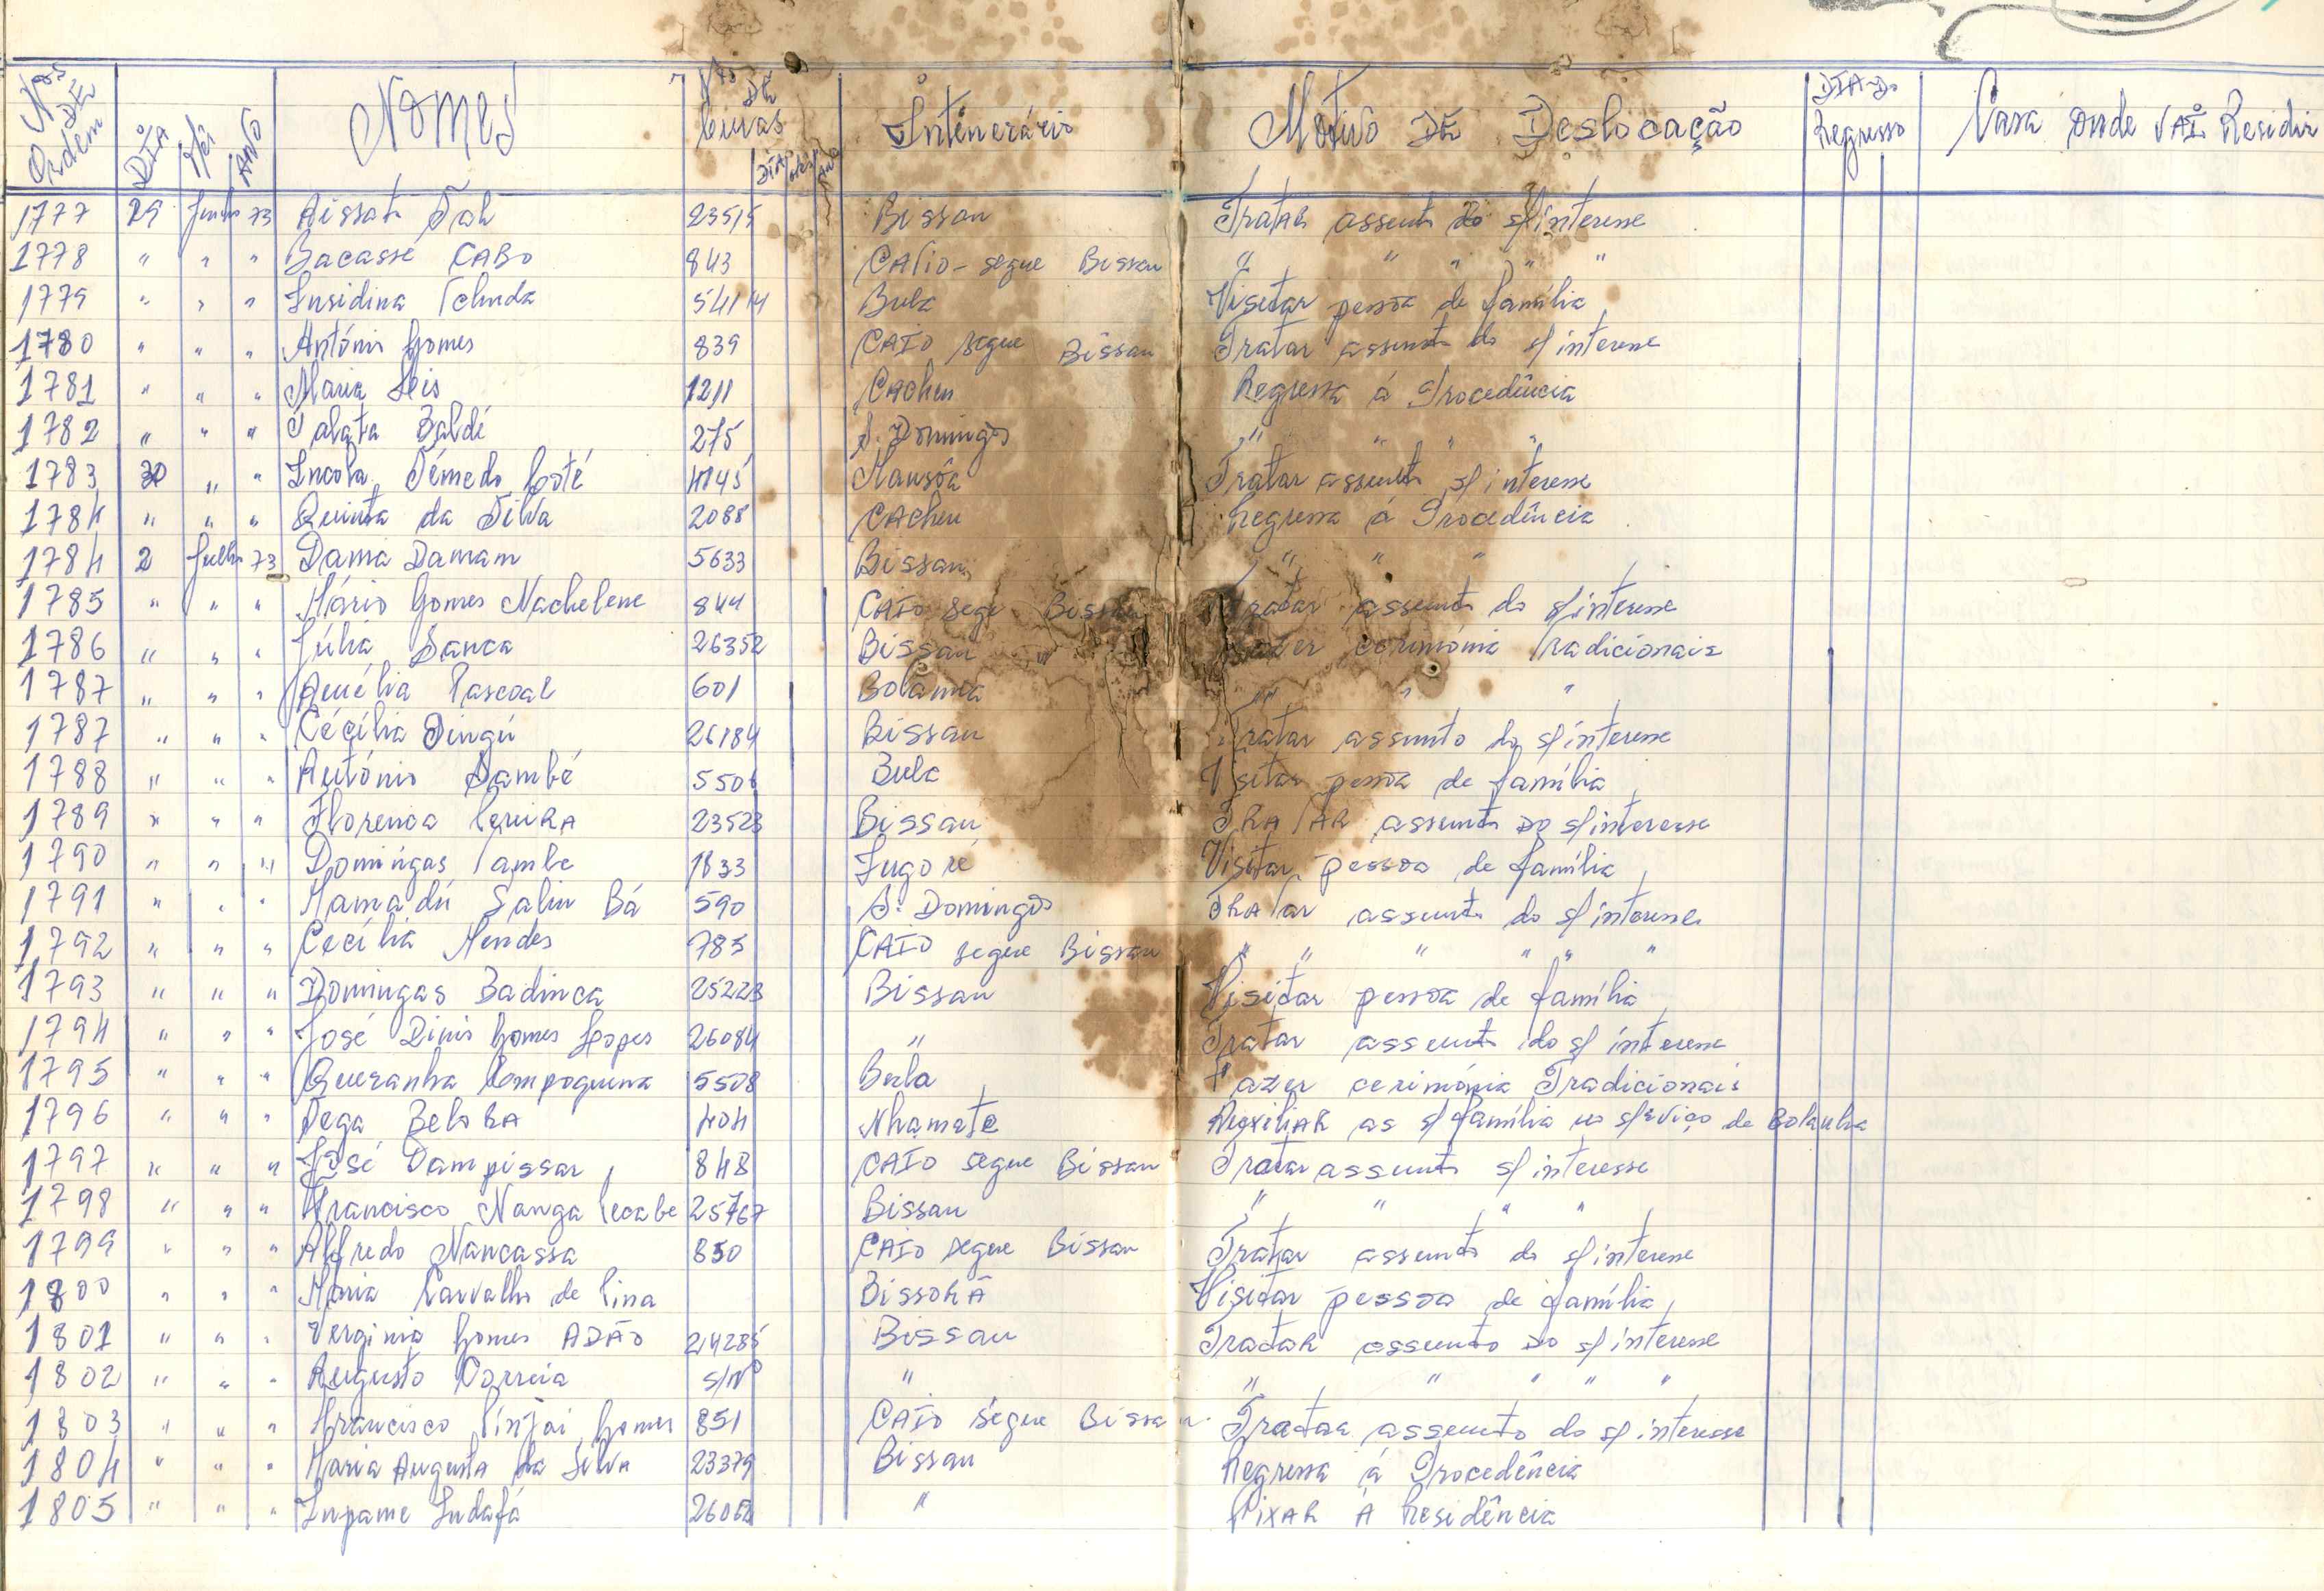 Nos DE Ordem DIA Mês ANO Nomes Nº DE Guias DIA Mês Ano Intinerário Motivo DE Deslocação DIA-Do Regresso Para onde VAI Residir
1777 29 Junho 73 Aissata 23515 Bissau Tratar assunto do s/interesse
1778 " " " Bacasse CABO 843 CAIO-segue Bissau " " " " "
1779 " " " Insidina Tchuda 541/14 Bula Visitar pessoa de família
1780 " " " António Gomes 839 CAIO segue Bissau Tratar assunto do s/interesse
1781 " " " Maria Reis 1211 Cacheu Regressa á Procedência
1782 " " " Talata Baldé 275 S. Domingos " " " "
1783 30 " " Incola Sémedo Coté 4145 Mansôa Tratar assunto s/interesse
1784 " " " Quinta da Silva 2088 Cacheu Regressa á Procedência
1784 2 Julho 73 Dama Damam 5633 Bissau " " "
1785 " " " Mário Gomes Nachelene 844 CAIO segue Bissau Tratar assunto do s/interesse
1786 " " " Júlia Sanca 26352 Bissau " Fazer cerimónia Tradicionais
1787 " " " Amélia Pascoal 601 Bolama " " "
1787 " " " Cécília Dingú 26184 Bissau Tratar assunto do s/interesse
1788 " " " António Sambé 5506 Bula Visitar pessoa de família
1789 " " " Florença PereiRA 23523 Bissau TRATAR assunto DO s/interesse
1790 " " " Domingas Tambe 1833 Ingoré Visitar pessoa de família
1791 " " " Mamadú Saliu Bá 590 S. Domingos TRATar assunto do s/interesse
1792 " " " Cecília Mendes 785 CAIO segue Bissau " " " " " "
1793 " " " Domingas Badinca 25223 Bissau Visitar pessoa de família
1794 " " " José Dinis Gomes Lopes 26084 " Tratar assunto do s/interesse
1795 " " " Queranha Compoguina 5508 Bula Fazer cerimónia Tradicionais
1796 " " " Sega Belo BA 404 Nhamate AuxiliAR as s/família no s/eviço de Bolanha
1797 " " " José Dampissar 848 CAIO segue Bissau Tratar assunto s/interesse
1798 " " " Francisco Nanga Pecabe 25767 Bissau " " " "
1799 " " " Alfredo Nancassa 850 CAIO segue Bissau Tratar assunto do s/interesse
1800 " " " Maria Carvalho de Pina BissoRÃ Visitar pessoa de família
1801 " " " Verginia Gomes ADÃO 24285 Bissau TratAR assunto DO s/interesse
1802 " " " Augusto Correia s/nº " " " " " "
1803 " " " Francisco Pintai Gomes 851 CAIO segue Bissau Tratar assunto do s/interesse
1804 " " " Maria Augusta da Silva 23379 Bissau Regressa á Procedência
1805 " " " Inpame Indafá 26062 " FixAR A Residência